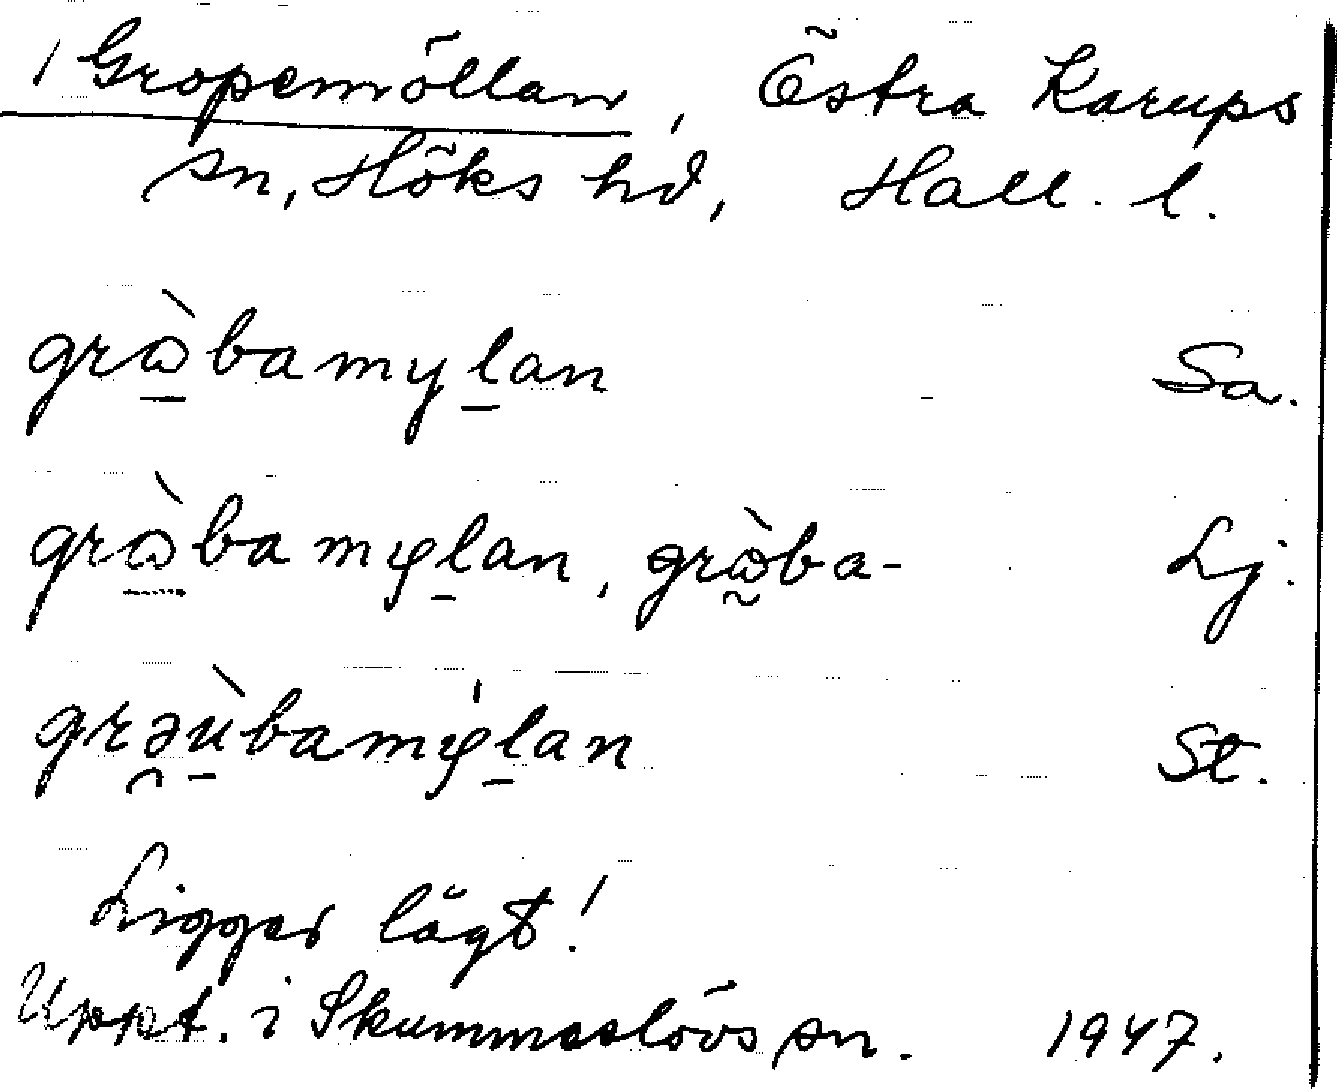 / Gropemöllan, Östra Karups
sn, Höks hd, Hall. l.
grɷ̀bamylan Sa.
grɷ̀bamylan, grɷ̀ba- Lj.
grəùbamýlan St.
Ligger lågt!
Uppt. i Skummeslövs sn. 1947.